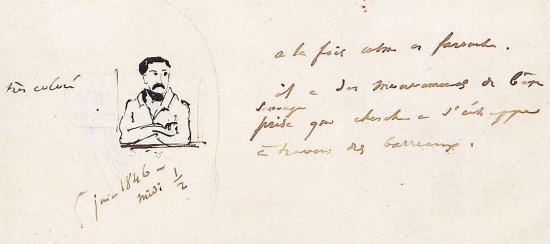 très coloré
à la fois calme et farouche.
il a des mouvements de bête
sauvage
prise qui cherche à s'échapper
à travers des barreaux.
5 juin 1846 –
midi 1/2